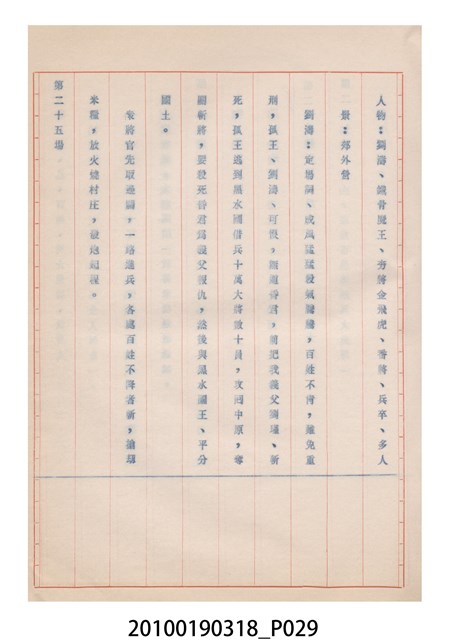 人物:劉濤、鐵骨魔王、夯將金飛虎、番將、兵卒、多人
景:郊外營
劉濤:定場詞、成風猛猛殺氣騰騰,百姓不肯,難免重
刑,孤王、劉濤、可恨,昏君,把我義父劉瑾、斬
死,孤王逃到黑水國借兵十萬大將數十員,攻回中原,奪
關斬將,要殺死昏君為義父報仇,然後與黑水國王、平分
國土。
眾將官先取邊關,一路進兵,各處百姓不降者斬,搶
米糧,放火燒村庄,
第二十五場
20100190318_P029